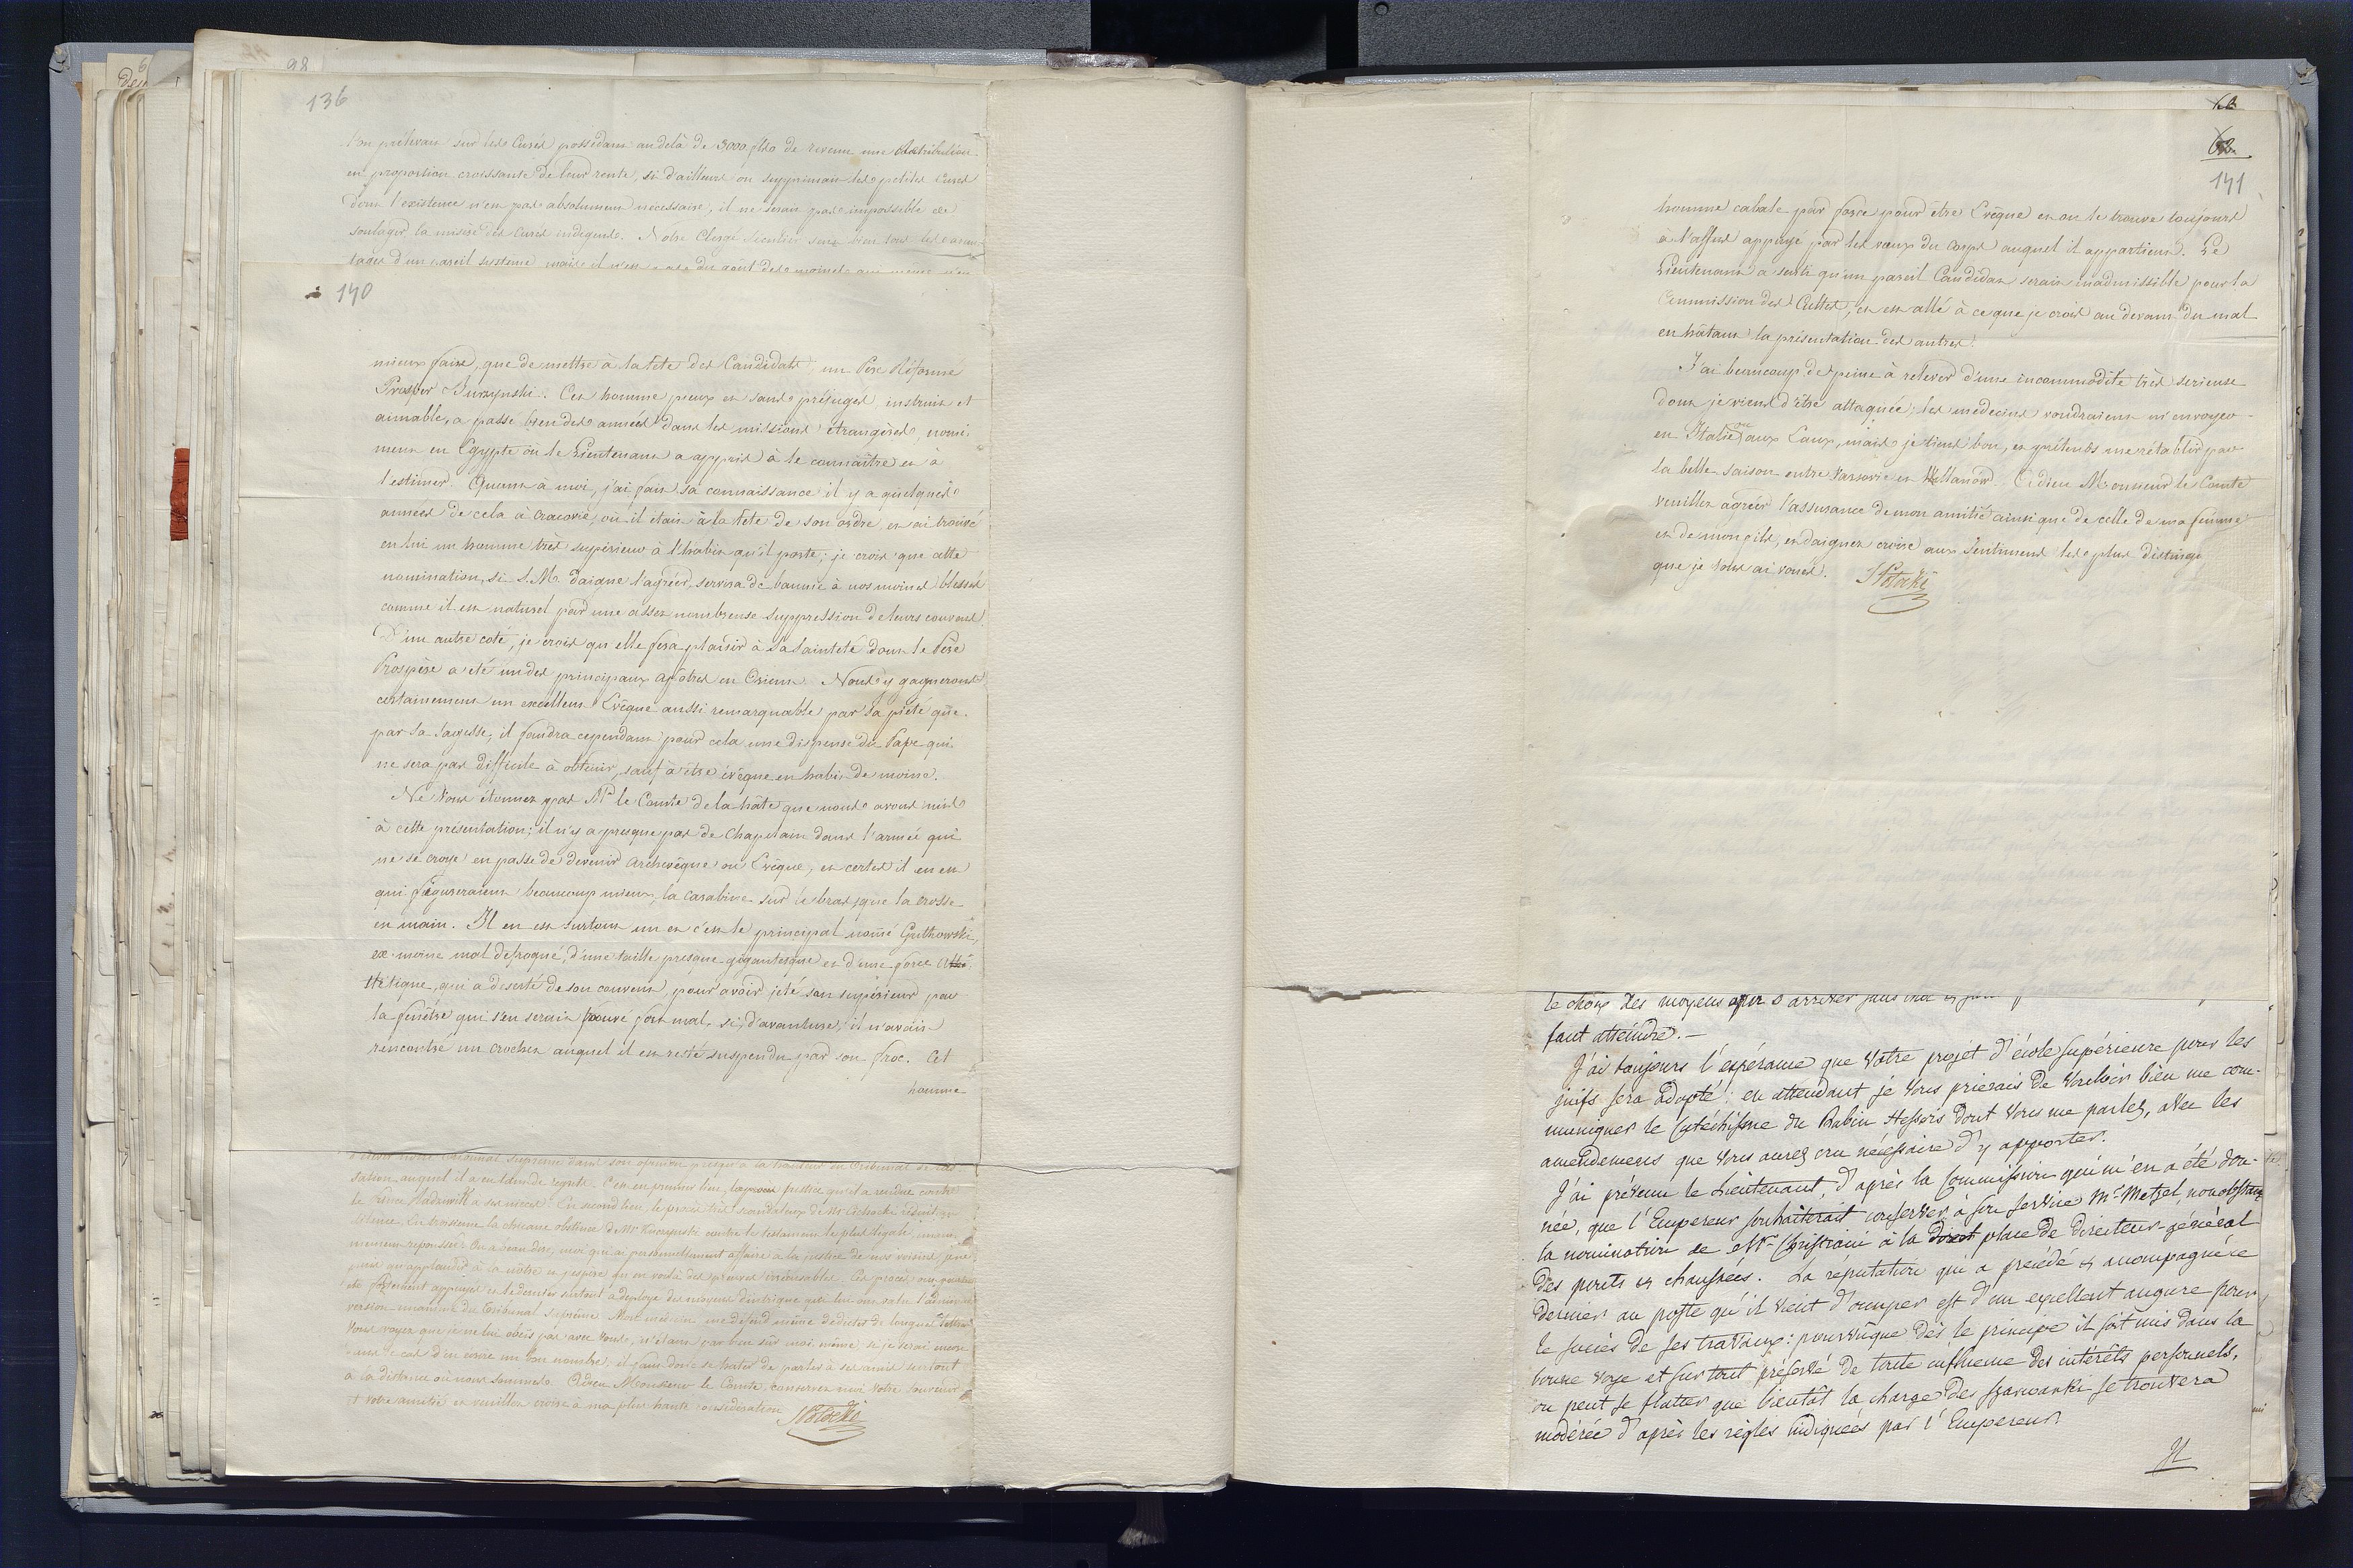 98
136
l'on prélevait sur les Curés possédant au delà de 3000 flo de revenu une Retribution
en proportion croissante de leur rente, si d'ailleurs on supprimait les petites Cures
dont l'existence n'est pas absolument necessaire, il ne serait pas impossible de
soulager la misère des Curés indigents. Notre Clergé Séculier sent bien tous les avan-
tages d'un pareil systeme mais il n'est pas du gout des moines
140
mieux faire, que de mettre à la tete des Candidats un Père Réformé
Prosper Burzynski. Cet homme pieux et sans préjugés instruit et
aimable, a passé bien des années dans les missions étrangères, nomé-
ment en Egypte où le Lieutenant a appris à le connaître et à
l'estimer. Quant à moi, j'ai fait sa connaissance il y a quelques
années de cela à Cracovie, où il était à la tete de son ordre, et ai trouvé
en lui un homme très supérieur à l'habit qu'il porte; je crois que cette
nomination, si S. M. daigne l'agréer, servira de baume à nos moines blessés
comme il est naturel par une assez nombreuse suppression de leurs couvents.
D'un autre coté, je crois qu'elle fera plaisir à Sa Sainteté dont le Père
Prospère a été un des principaux Apôtres en Orient. Nous y gagnerons
certainement un excellent Evêque aussi remarquable par sa piété que
par sa sagesse; il faudra cependant pour cela une dispense du Pape qui
ne sera pas difficile à obtenir, sauf à être évêque en habit de moine.
Ne Vous étonnez pas Mr le Comte de la hâte que nous avons mise
à cette présentation; il n'y a presque pas de Chapelain dans l'armée qui
ne se croye en passe de devenir Archevêque ou Evêque, et certes il en est
qui figureraient beaucoup mieux, la carabine sur le bras, que la crosse
en main. Il en est surtout un et c'est le principal nomé Gutkowski,
ex-moine mal défroqué, d'une taille presque gigantesque et d'une force athlé-
thlétique, qui a deserté de son couvent, pour avoir jeté son supérieur par
la fenêtre qui s'en serait trouvé fort mal, si, d'avanture, il n'avait
rencontré un crochet auquel il est resté suspendu par son froc. Cet
homme
notre Tribunal Supreme dans son opinion presqu'à la hauteur du Tribunal de Cas-
sation auquel il a eu lendu C'est en premier lieu, justice qu'il a rendue contre
le Prince Radziwill a sa niece. En second lieu, le procès très scandaleux de Mr Cichocki
silence. En troisieme la chicane obstinée de Mr contre le testament le plus légal,
repoussée.
puis qu'applaudir à la nôtre et j'espère qu'en voilà des preuves irrécusables. Ces procès ont partout
été fortement appuyés et le dernier surtout a deployé des moyens d'intrigue qui lui ont valu l'animad-
version unanime du Tribunal Suprême. Mon medecin me défend même de dicter de longues lettres
Vous voyez que je ne lui obéis pas avec Vous, n'étant pas bien sûr moi même, si je serai encore
dans le cas d'en écrire un bon nombre; il faut donc se hâter de parler à ses amis surtout
à la distance où nous sommes. Adieu Monsieur le Comte, conservez moi Votre souvenir
et votre amitié et veuillez croire à ma plus haute considération
SPotocki
62
141
homme cabale par force pour être Evêque et on le trouve toujours
à l'affut appuyé par les voeux du corps auquel il appartient. Le
Lieutenant a senti qu'un pareil Candidat serait inadmissible pour la
Commission des Cultes, et est allé à ce que je crois au devant du mal
en hâtant la présentation des autres.
J'ai beaucoup de peine à relever d'une incommodité très serieuse
dont je viens d'être attaquée; les medecins voudraient m'envoyer
en Italie ou aux Eaux, mais je tiens bon, et prétends me rétablir par
la belle saison entre Varsovie et Willanów. Adieu Monsieur le Comte
veuillez agréer l'assurance de mon amitié ainsi que de celle de ma femme
et de mon fils, et daignez croire aux sentimens les plus distingu
que je Vous ai voués. SPotocki
le choix des moyens pour s'arriver
faut atteindre. —
J'ai toujours l'espérance que Votre projet d'école supérieure pour les
juifs sera adopté: en attendant je Vous prierais de Vouloir bien me com-
muniquer le Catéchisme du Rabin dont Vous me parlez, avec les
amendemens que Vous aurez cru nécessaire d'y apporter.
J'ai prévenu le Lieutenant, d'après la Commission qui m'en a été don-
née, que l'Empereur souhaiterait conserver à son service Mr Metzel, nonobstant
la nomination de Mr Christiani à la direct place de Directeur-général
des ponts et chaussées. La réputation qui a précédé et accompagné ce
dernier au poste qu'il vient d'occuper est d'un excellent augure pour
le succès de ses travaux: pourvûque dès le principe il soit mis dans la
bonne voye et surtout préservé de toute influence des intérêts personels,
on peut se flatter que bientôt la charge des szarwarki se trouvera
modérée d'après les règles indiquées par l'Empereur.
Il